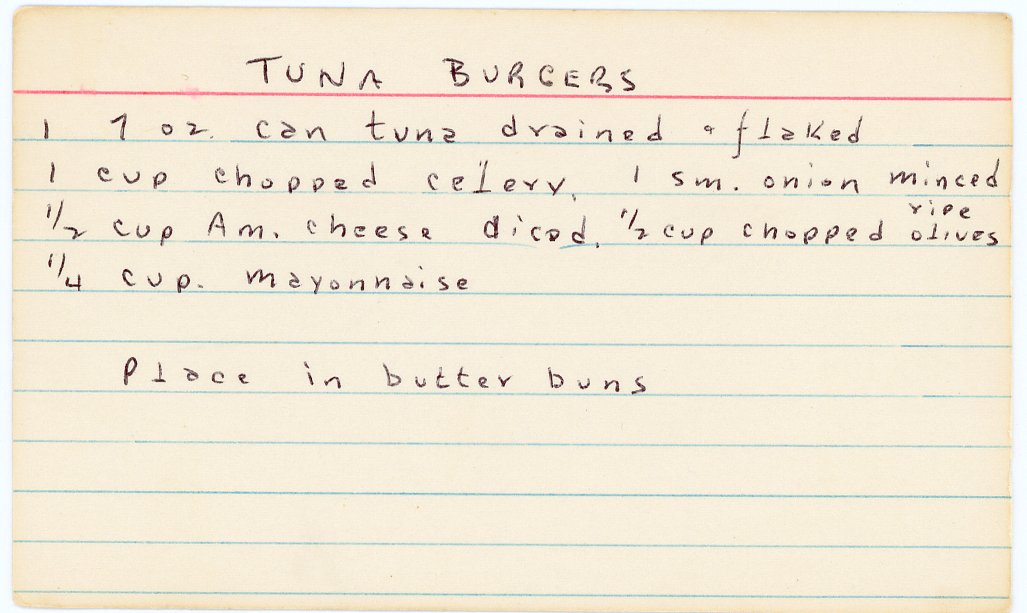 TUNA BURGERS
1 7 oz. can tuna drained & flaked
1 cup chopped celery, 1 sm. onion minced
1/2 cup Am. cheese diced, 1/2 cup chopped ripe olives
1/4 cup. mayonnaise
Place in butter buns